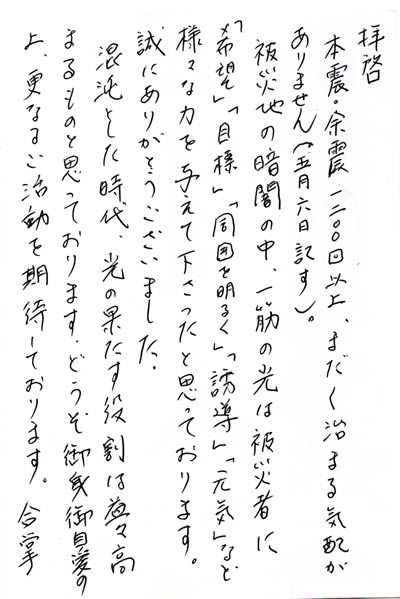 拝啓
本震・余震一二〇〇回以上、まだく治まる気配が
ありません(五月六日記す)。
被災地の暗闇の中、一筋の光は被災者に
「希望」「目標」「周囲を明るく」「誘導」「元気」など
様々な力を与えて下さったと思っております。
誠にありがとうございました。
混沌とした時代、光の果たす役割は益々高
まるものと思っております。どうぞ御身御自愛の
上、更なるご活動を期待しております。合掌